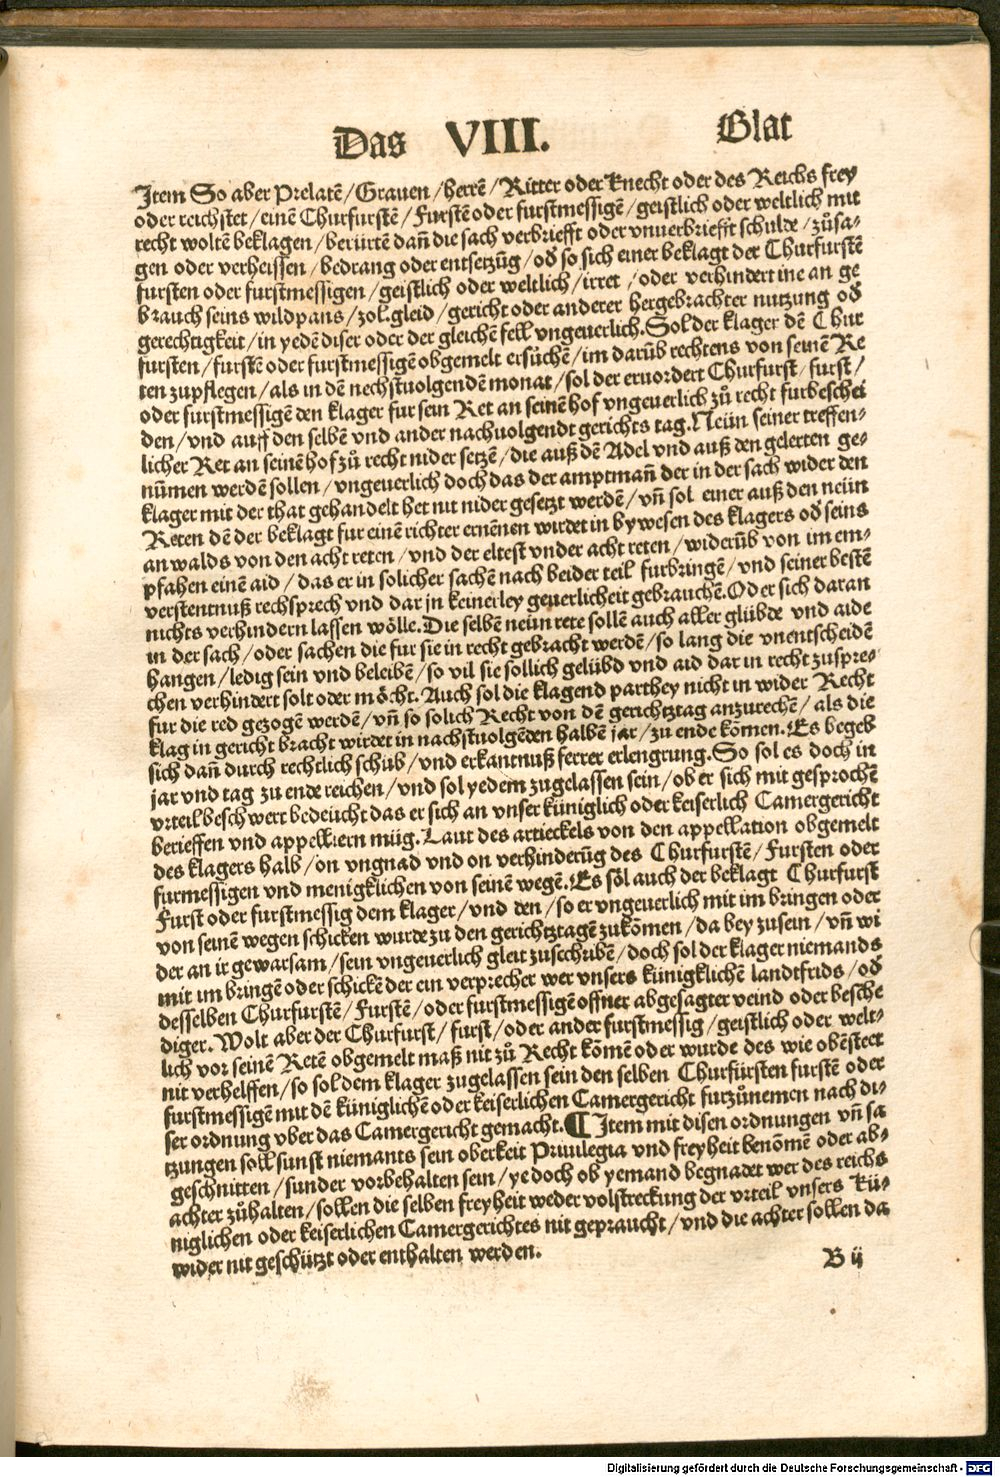 Das VIII. Blat
Item So aber Prelatē / Grauen / herrē / Ritter oder knecht oder des Reichs frey
oder reichstet / einē Churfurstē / Furstē oder furstmessigē / geistlich oder weltlich mit
recht woltē beklagen / berürtē dañ die sach verbriefft oder vnuerbriefft schulde / zůsa-
gen oder verheissen / bedrang oder entsetzūg / oď so sich einer beklagt der Churfurstē
fursten oder furstmessigen / geistlich oder weltlich / irret / oder verhindert ine an ge
brauch seins wildpans / zol. gleid / gericht oder anderer hergebrachter nutzung oď
gerechtigkeit / in yedē diser oder der gleichē fell vngeuerlich. Sol der klager dē Chur
fursten / furstē oder furstmessigē obgemelt ersůchē / im darūb rechtens von seinē Re
ten zupflegen / als in dē nechstuolgendē monat / sol der eruordert Churfurst / furst /
oder furstmessigē den klager fur sein Ret an seinē hof vngeuerlich zů recht furbeschei
den / vnd auff den selbē vnd ander nachuolgendt gerichts tag. Neün seiner treffen-
licher Ret an seinē hof zů recht nider setzē / die auß dē Adel vnd auß den gelerten ge-
nūmen werdē sollen / vngeuerlich doch das der amptmañ der in der sach wider den
klager mit der that gehandelt het nit nider gesetzt werdē / vñ sol einer auß den neün
Reten dē der beklagt fur einē richter ernēnen wirdet in bywesen des klagers oď seins
anwalds von den acht reten / vnd der eltest vnder acht reten / widerūb von im em-
pfahen einē aid / das er in solicher sachē nach beider teil furbringē / vnd seiner bestē
verstentnuß rechsprech vnd dar jn keinerley geuerlicheit gebrauchē. Oder sich daran
nichts verhindern lassen wölle. Die selbē neün rete sollē auch aller glübde vnd aide
in der sach / oder sachen die fur sie in recht gebracht werdē / so lang die vnentscheidē
hangen / ledig sein vnd beleibē / so vil sie sollich gelübd vnd aid dar in recht zuspre-
chen verhindert solt oder möcht. Auch sol die klagend parthey nicht in wider Recht
fur die red gezogē werdē / vñ so solich Recht von dē gerichtztag anzurechē / als die
klag in gericht bracht wirdet in nachstuolgēden halbē jar / zu ende kōmen. Es begeb
sich dañ durch rechtlich schub / vnd erkantnuß ferrer erlengrung. So sol es doch in
jar vnd tag zu ende reichen / vnd sol yedem zugelassen sein / ob er sich mit gesprochē
vrteil beschwert bedeücht das er sich an vnser küniglich oder keiserlich Camergericht
berieffen vnd appelliern müg. Laut des artieckels von den appellation obgemelt
des klagers halb / on vngnad vnd on verhinderūg des Churfurstē / Fursten oder
furmessigen vnd menigklichen von seinē wegē. Es söl auch der beklagt Churfurst
Furst oder furstmessig dem klager / vnd den / so er vngeuerlich mit im bringen oder
von seinē wegen schicken wurde zu den gerichtztagē zukōmen / da bey zusein / vñ wi
der an ir gewarsam / sein vngeuerlich gleit zuschribē / doch sol der klager niemands
mit im bringē oder schickē der ein verprecher wer vnsers künigklichē landtfrids / oď
desselben Churfurstē / Furstē / oder furstmessigē offner abgesagter veind oder besche
diger. Wolt aber der Churfurst / furst / oder ander furstmessig / geistlich oder welt-
lich vor seinē Retē obgemelt maß nit zů Recht kōmē oder wurde des wie obēsteet
nit verhelffen / so sol dem klager zugelassen sein den selben Churfürsten furstē oder
furstmessigē mit dē küniglichē oder keiserlichen Camergericht furzůnemen nach di-
ser ordnung vber das Camergericht gemacht. ¶ Item mit disen ordnungen vñ sa
tzungen soll sunst niemants sein oberkeit Priuilegia vnd freyheit benōmē oder ab-
geschnitten / sunder vorbehalten sein / ye doch ob yemand begnadet wer des reichs
achter zůhalten / sollen die selben freyheit weder volstreckung der vrteil vnsers kü-
niglichen oder keiserlichen Camergerichtes nit gepraucht / vnd die achter sollen da
wider nit geschützt oder enthalten werden.
B ij
Digitalisierung gefördert durch die Deutsche Forschungsgemeinschaft - DFG